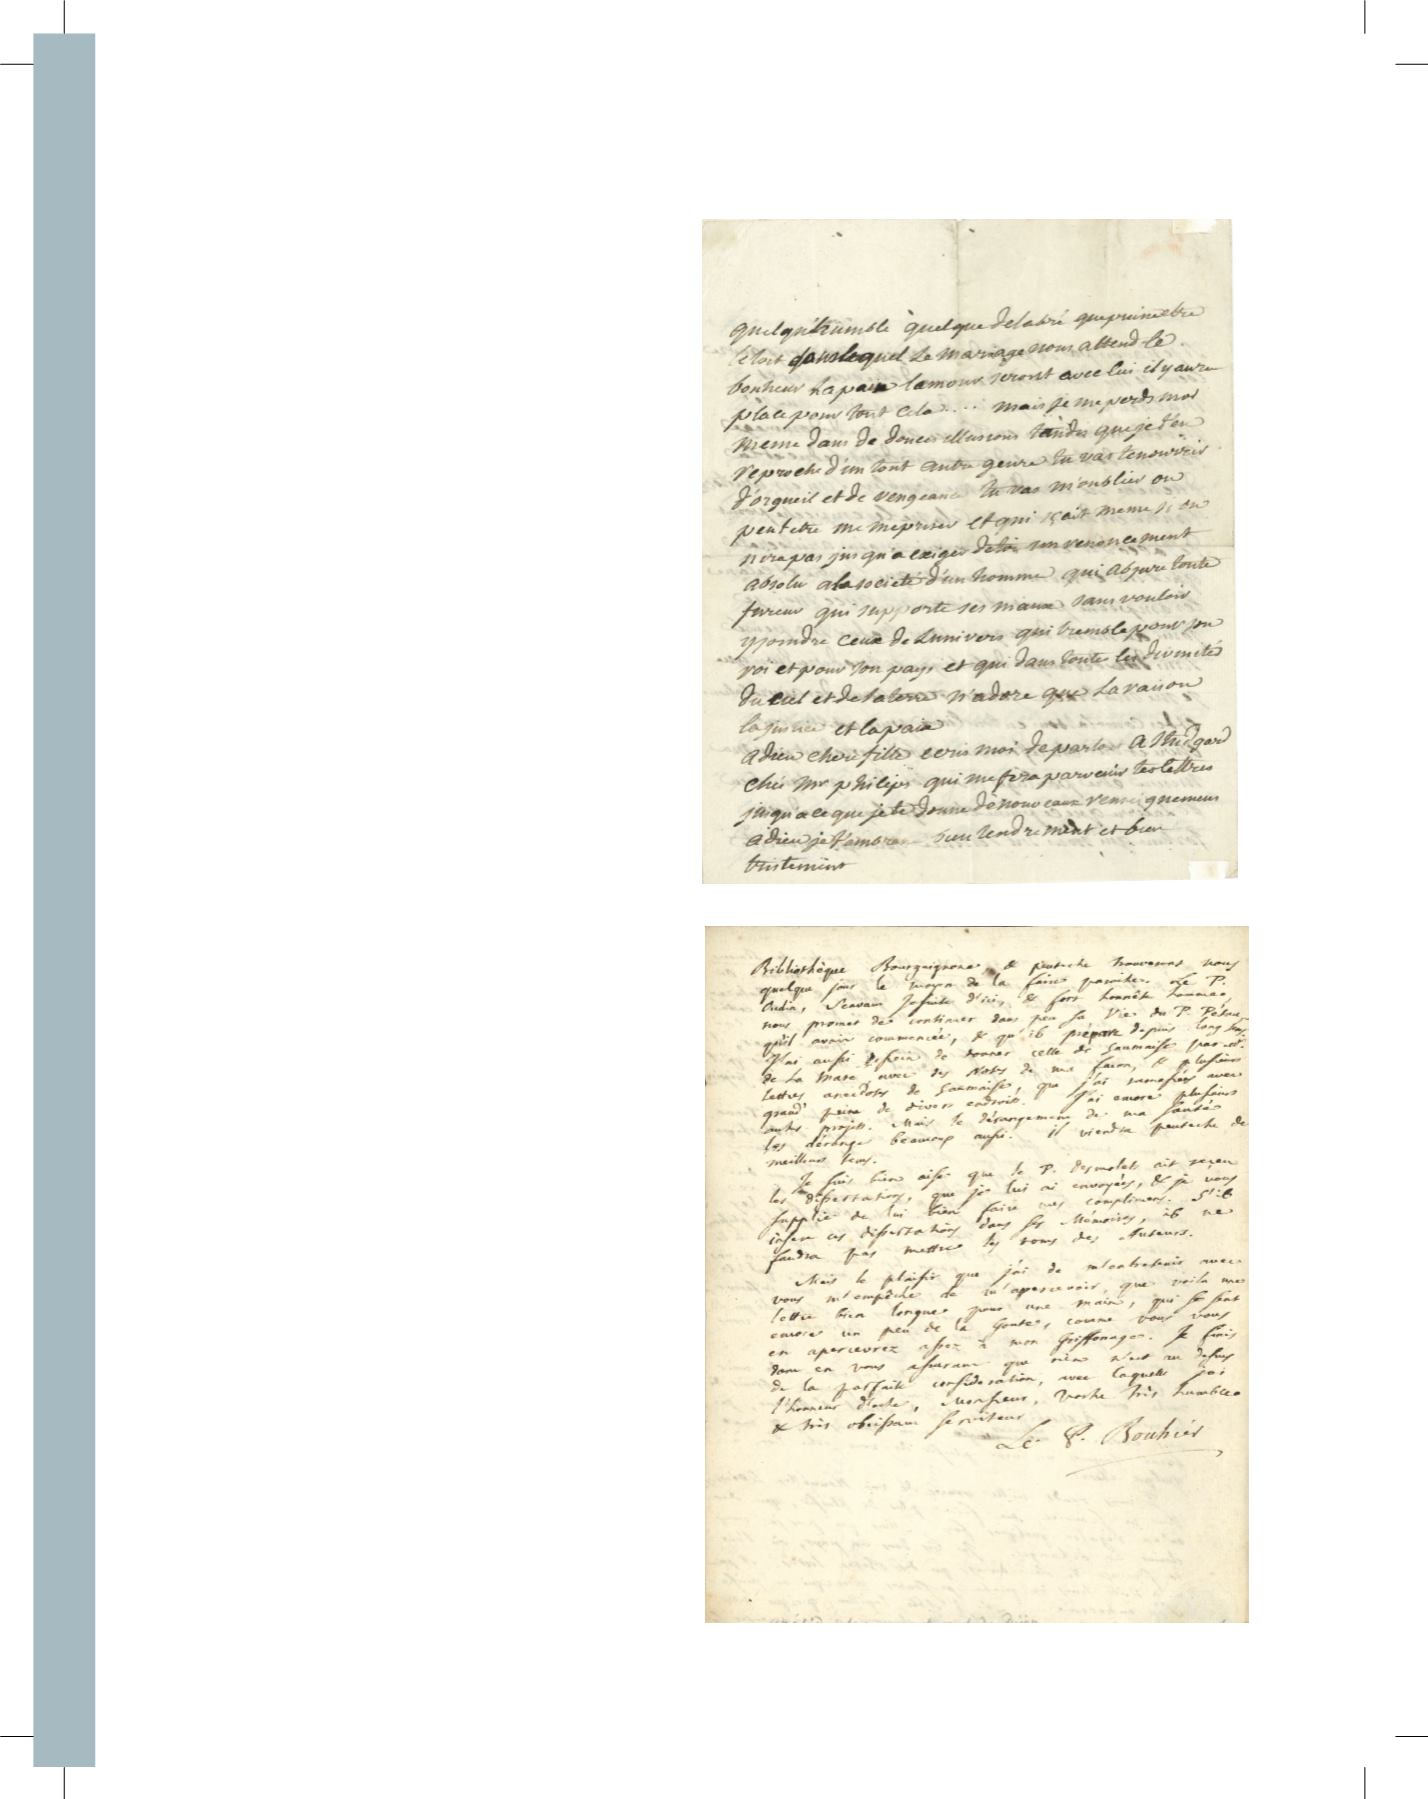 quelqu'humble quelque delabré que puisse etre
le toit dans lequel le mariage nous attend le
bonheur la paix lamour seront avec lui il y aura
place pour tout cela.... mais je me perds moi
meme dans de douces illusions tandis que je t'en
reproche d'un tout autre genre tu vas te nourrir
d'orgueil et de vengeance tu vas m'oublier ou
peut etre me mepriser et qui sçait meme si on
n'ira pas jusqu'a exiger de toi un renoncement
absolu a la societé d'un homme qui abjure toute
fureur qui supporte ses maux sans vouloir
y joindre ceux de lunivers qui tremble pour son
roi et pour son pays et qui dans toutes les divinités
du ciel et de la terre n'adore que la raison
la justice et la paix
adieu chere fille ecris moi par
chés mr philips qui me fera parvenir tes lettres
jusqu'a ce que je te donne de nouveaux renseignemens
adieu je t'embrasse bien tendrement et bien
tristement
Bibliothèque Bourguignone, & peutestre trouverons nous
quelque jour le moyen de la faire paroitre. Le P.
Oudin, Sçavant Jesuite d'ici, & fort honnête homme,
nous promet de continuer dans peu la Vie du P. Pétau,
qu'il avoit commencée, & qu'il prépare depuis long tems.
J'ai aussi dessein de donner celle de Saumaise par M.
de La Mare avec des Notes de ma façon, & plusieurs
lettres anecdotes de Saumaise, que j'ai ramassées avec
grand' peine de divers endroits. J'ai encore plusieurs
autres projets. Mais le dérangement de ma santé
les dérange beaucoup aussi. Il viendra peutestre de
meilleurs tems.
Je suis bien aise que le P. Desmolets ait reçeu
les dissertations, que je lui ai envoyées, & je vous
supplie de lui bien faire mes complimens. S'il
insere ces dissertations dans ses Mémoires, il ne
faudra pas mettre les noms des Auteurs.
Mais le plaisir que j'ai de m'entretenir avec
vous m'empêche de m'apercevoir, que voila une
lettre bien longue pour une main, qui se sent
encore un peu de la Goute, comme vous vous
en apercevrez assez à mon Griffonage. Je finis
donc en vous assurant que rien n'est au dessus
de la parfaite consideration, avec laquelle j'ai
l'honneur d'estre, Monsieur, vostre très humble
& très obeissant serviteur
Le P. Bouhier